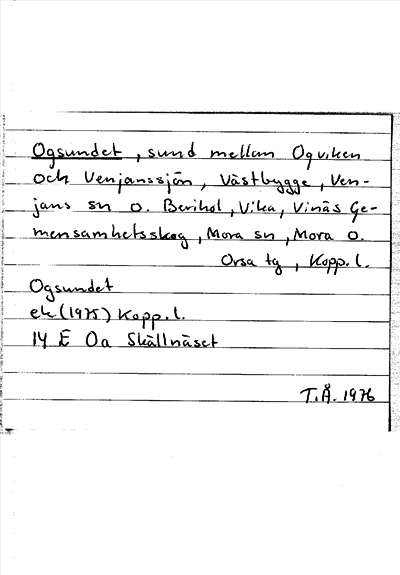 Ogsundet, sund mellan Ogviken
och Venjanssjön, Västbygge, Ven-
jans sn o. Berihol, Vika, Vinäs Ge-
mensamhetsskog, Mora sn, Mora o.
Orsa tg, Kopp. l.
Ogsundet
ek (1975) Kopp. l.
14 E 0a Skållnäset
T.Å. 1976